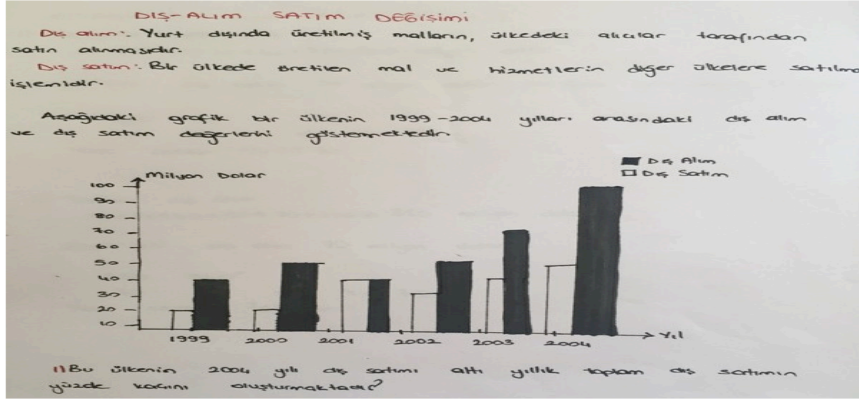 DIŞ-ALIM SATIM DEĞİŞİMİ
Dış alım: Yurt dışında üretilmiş malların, ülkedeki alıcılar tarafından
satın alınmasıdır.
Dış satım: Bir ülkede üretilen mal ve hizmetlerin diğer ülkelere satılma
işlemidir.
Aşağıdaki grafik bir ülkenin 1999-2004 yılları arasındaki dış alım
ve dış satım değerlerini göstermektedir.
Dış Alım
Dış Satım
Milyon Dolar
100
90
80
70
60
50
40
30
20
10
1999 2000 2001 2002 2003 2004 Yıl
1) Bu ülkenin 2004 yılı dış satımı altı yıllık toplam dış satımın
yüzde kaçını oluşturmaktadır?